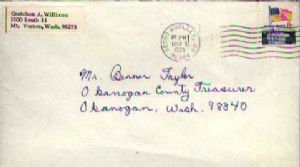 Gretchen A. Williams
1500 South 11
Mt. Vernon, Wash. 98273
PM
1978
Ms. Deanor Taylor
Okanogan County Treasurer
Okanogan, Wash. 98840